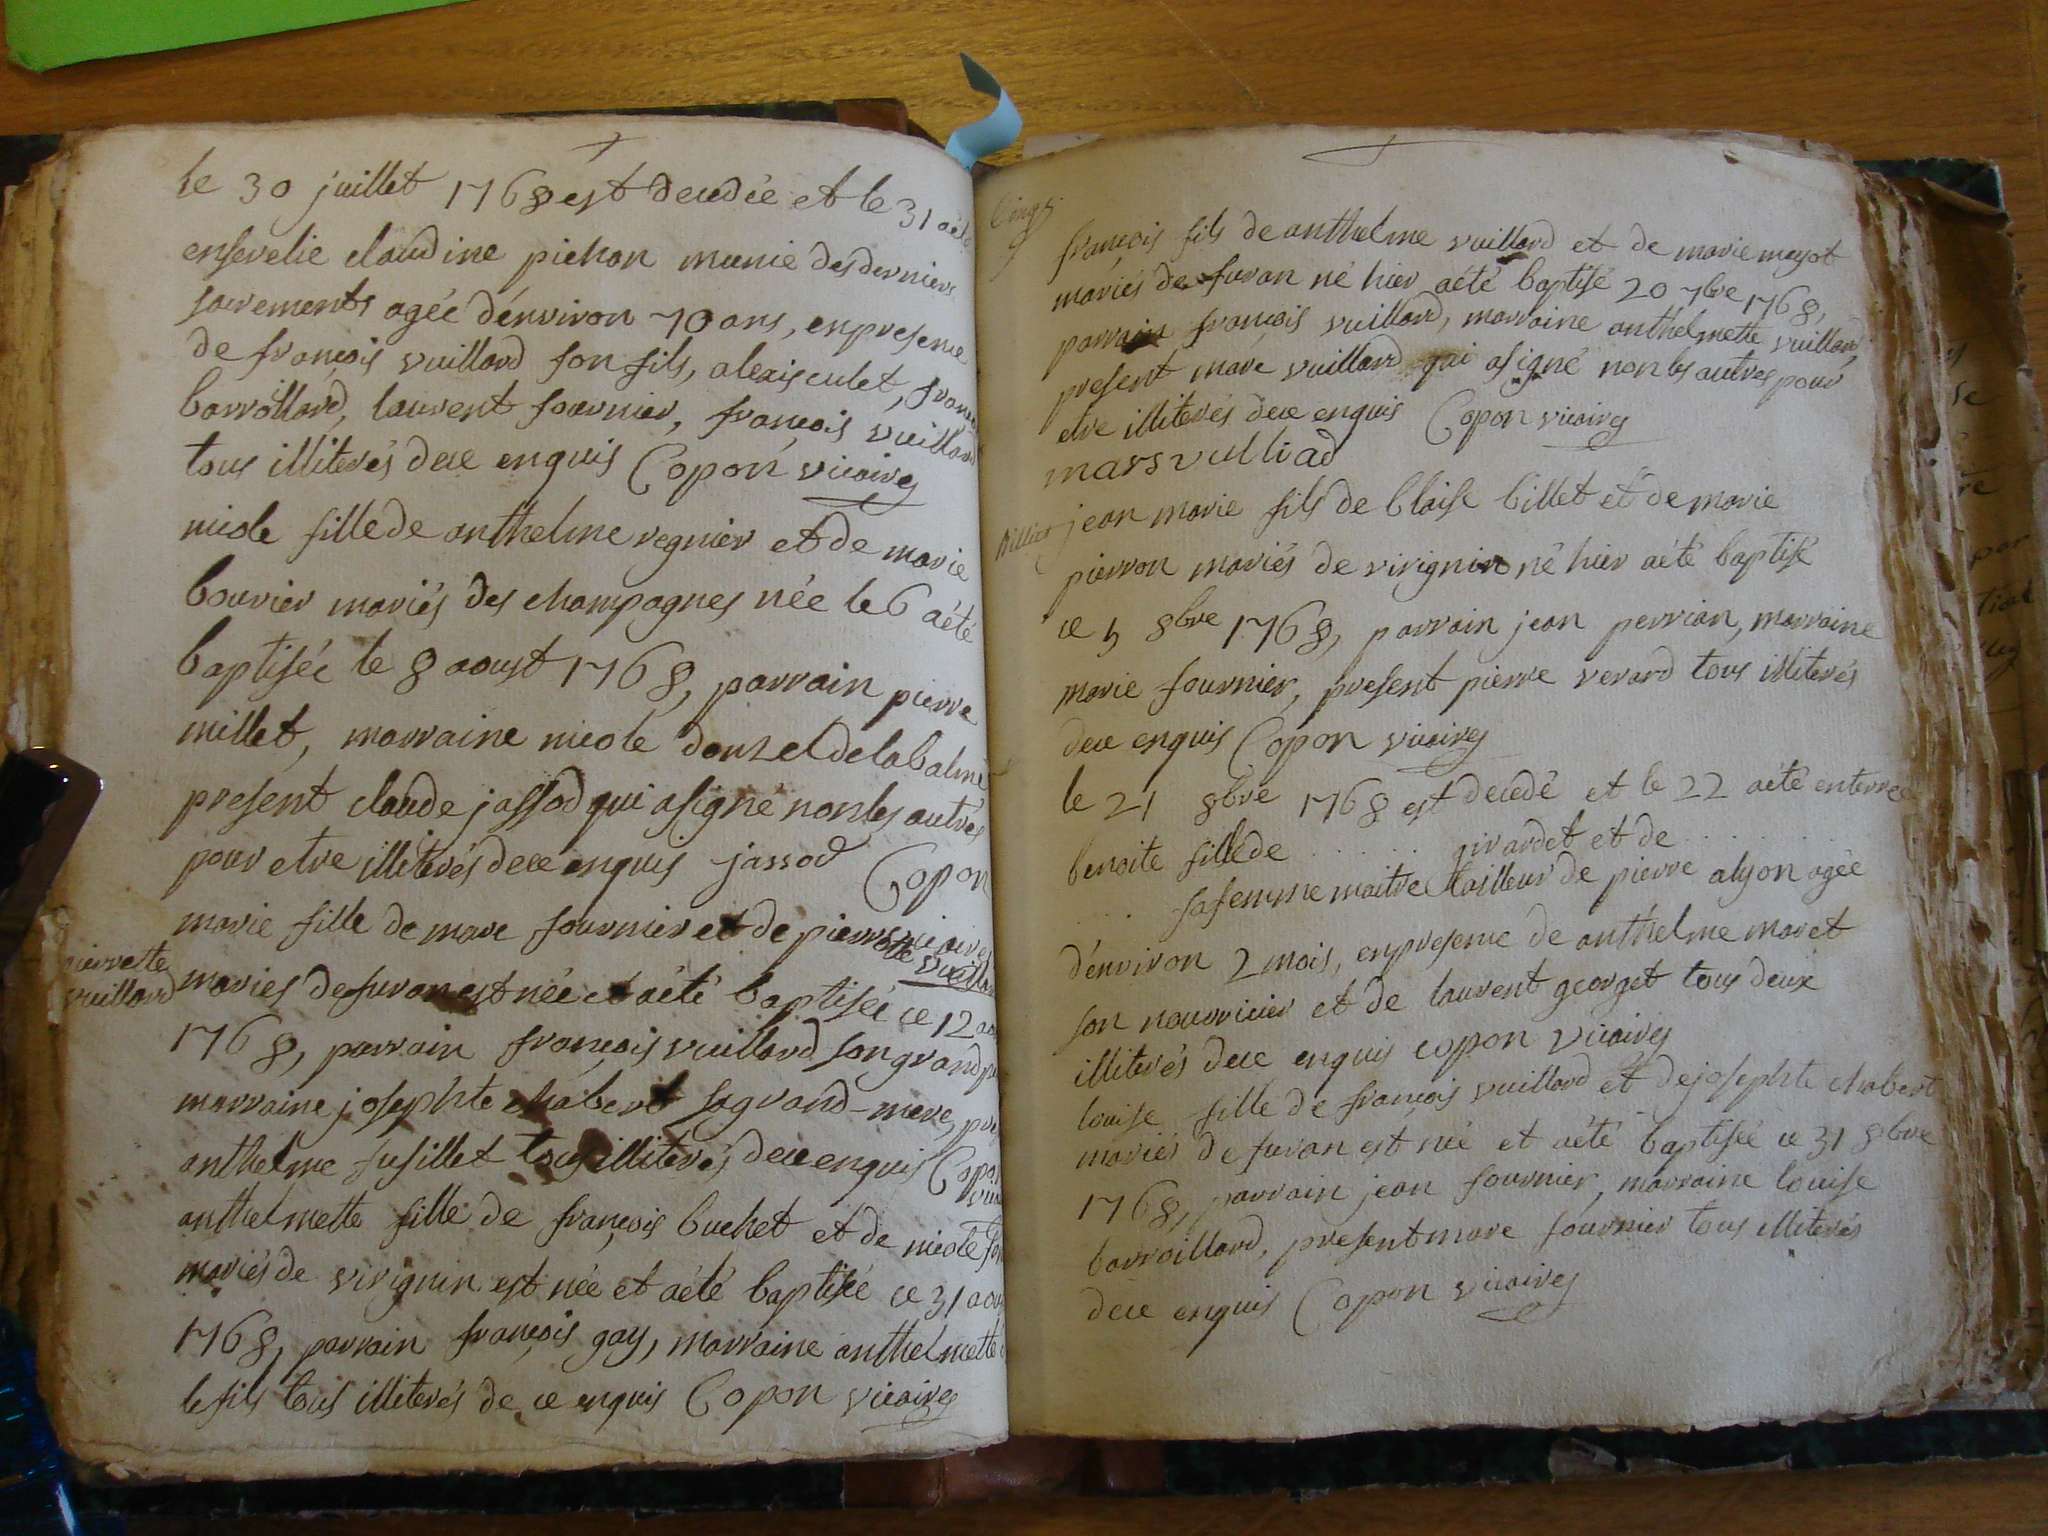 le 30 juillet 1768 est decedée et le 31 aété
ensevelie claudine pichon munie des derniers
sacrements agée d'énviron 70 ans, en presence
de françois vuillard son fils, alexis culet,
barroillard, laurent fournier, françois vuillard
tous illiterés de ce enquis Copon vicaire
nicole fille de anthelme regnier et de marie
bouvier mariés des champagnes née le 6 aété
baptisée le 8 aoust 1768, parrain pierre
millet, marraine nicole donzel de la balme
present claude jassod qui a signé non les autres
pour etre illiterés de ce enquis jassod Copon
vicaire
marie fille de marc fournier et de pierrette vuillard
pierrette
vuillard
mariés de furan est née et aété baptisée ce 12
1768, parrain françois vuillard son grand
marraine josephte chabert sa grand-mere,
anthelme fusillet tous illiterés de ce enquis Copon
anthelmette fille de françois buchet et de nicole
mariés de virignin est née et aété baptisée ce 31
1768, parrain françois gay, marraine anthelmette
le fils tous illiterés de ce enquis Copon vicaire
françois fils de anthelme vuillard et de marie mayot
mariés de furan né hier aété baptisé 20 7bre 1768,
parrain françois vuillard, marraine anthelmette vuillard,
present marc vuillard qui a signé non les autres pour
etre illiterés de ce enquis Copon vicaire
mars vulliad
Billiet
jean marie fils de blaise billet et de marie
pierron mariés de virignin né hier aété baptisé
ce 5 8bre 1768, parrain jean perrian, marraine
marie fournier, present pierre verard tous illiterés
de ce enquis Copon vicaire
le 21 8bre 1768 est decedé et le 22 aété enterrée
benoite fille de . . . . . . girardet et de . . . . . .
. . . . sa femme maitre tailleur de pierre alyon agée
d'énviron 2 mois, en presence de anthelme maret
son nourricier et de laurent georget tous deux
illiterés de ce enquis copon vicaire
louise fille de françois vuillard et de josephte chabert
mariés de furan est née et aété baptisée ce 31 8bre
1768, parrain jean fournier, marraine louise
barroillard, present marc fournier tous illiterés
de ce enquis Copon vicaire